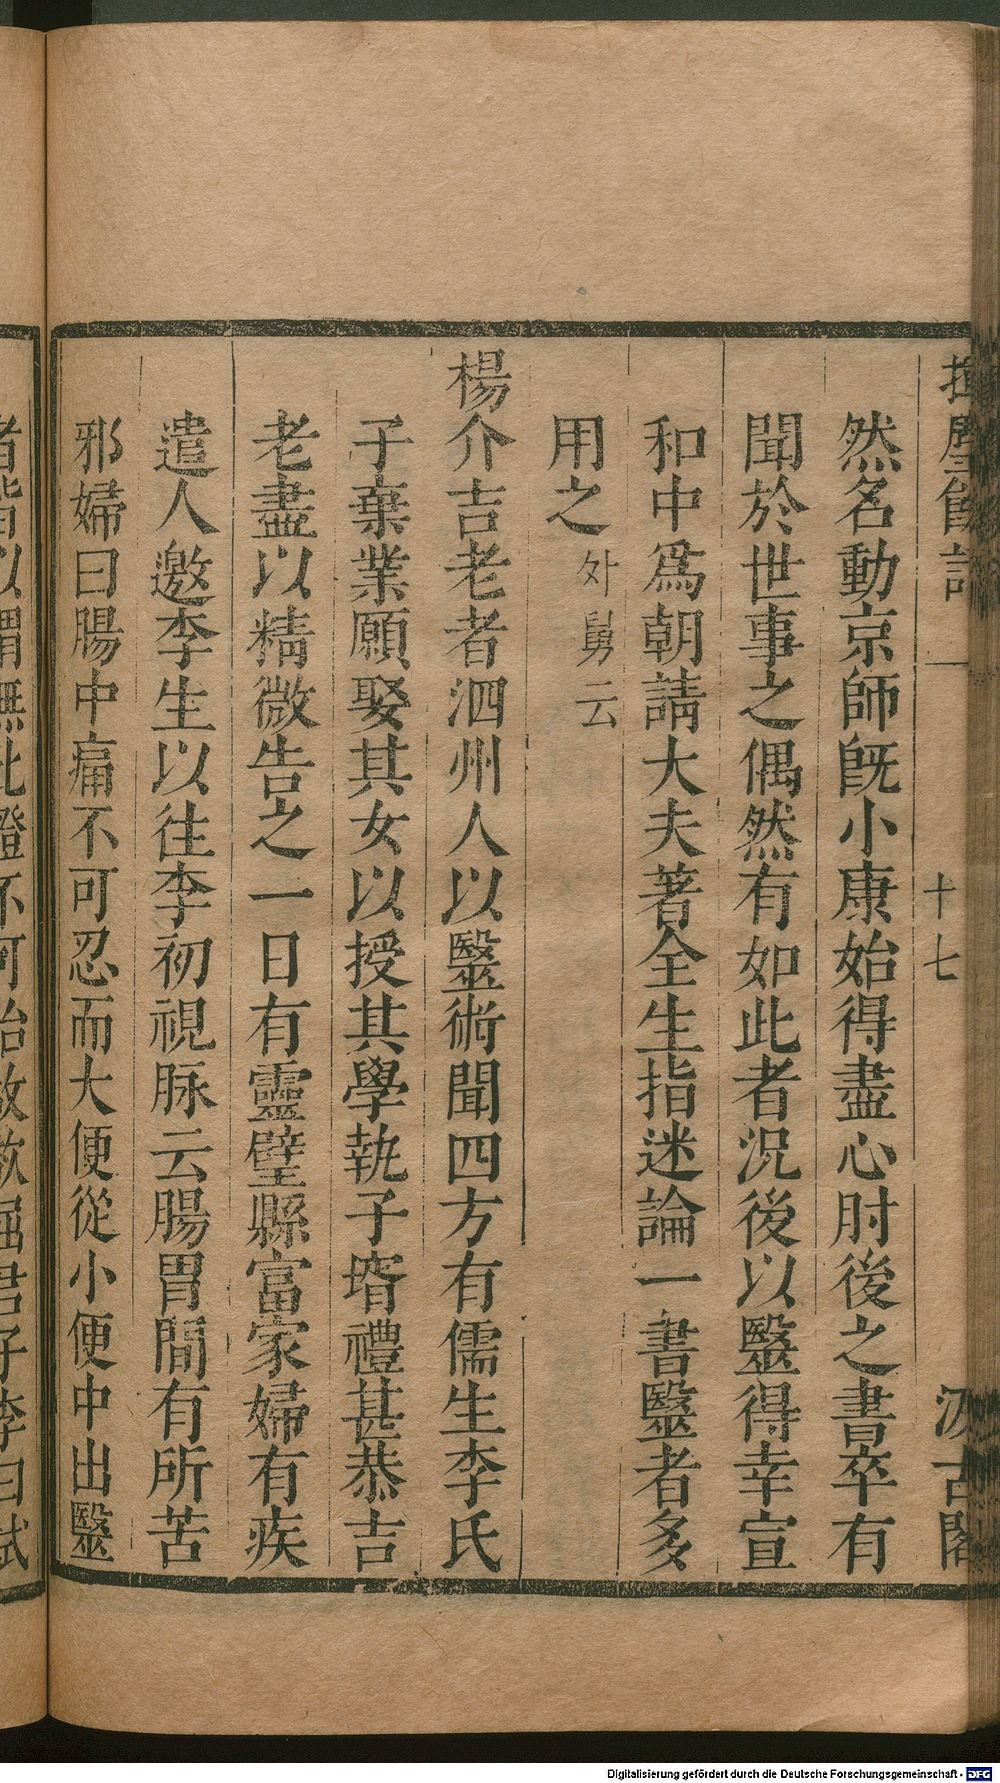 揮麈餘話
十七
汲古閣
然名動京師既小康始得盡心肘後之書卒有
聞於世事之偶然有如此者况後以醫得幸宣
和中爲朝請大夫著全生指迷論一書醫者多
用之外舅云
楊介吉老者泗州人以醫術聞四方有儒生李氏
子棄業願娶其女以授其學執子壻禮甚恭吉
老盡以精微告之一日有靈壁縣富家婦有疾
遣人邀李生以往李初視脉云腸胃間有所苦
邪婦曰腸中痛不可忍而大便從小便中出醫
者皆以謂無此證不可治故欲屈君子李曰試
Digitalisierung gefördert durch die Deutsche Forschungsgemeinschaft - DFG